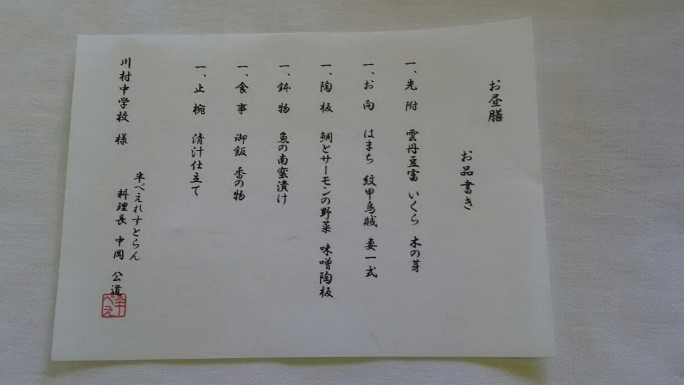 お昼膳
お品書き
一、先附 雲丹豆富 いくら 木の芽
一、お向 はまち 紋甲烏賊 妻一式
一、陶板 鯛とサーモンの野菜 味噌陶板
一、鉢物 魚の南蛮漬け
一、食事 御飯 香の物
一、止椀 清汁仕立て
川村中学校 様
半べえれすとらん
料理長 中岡 公道
半べえ